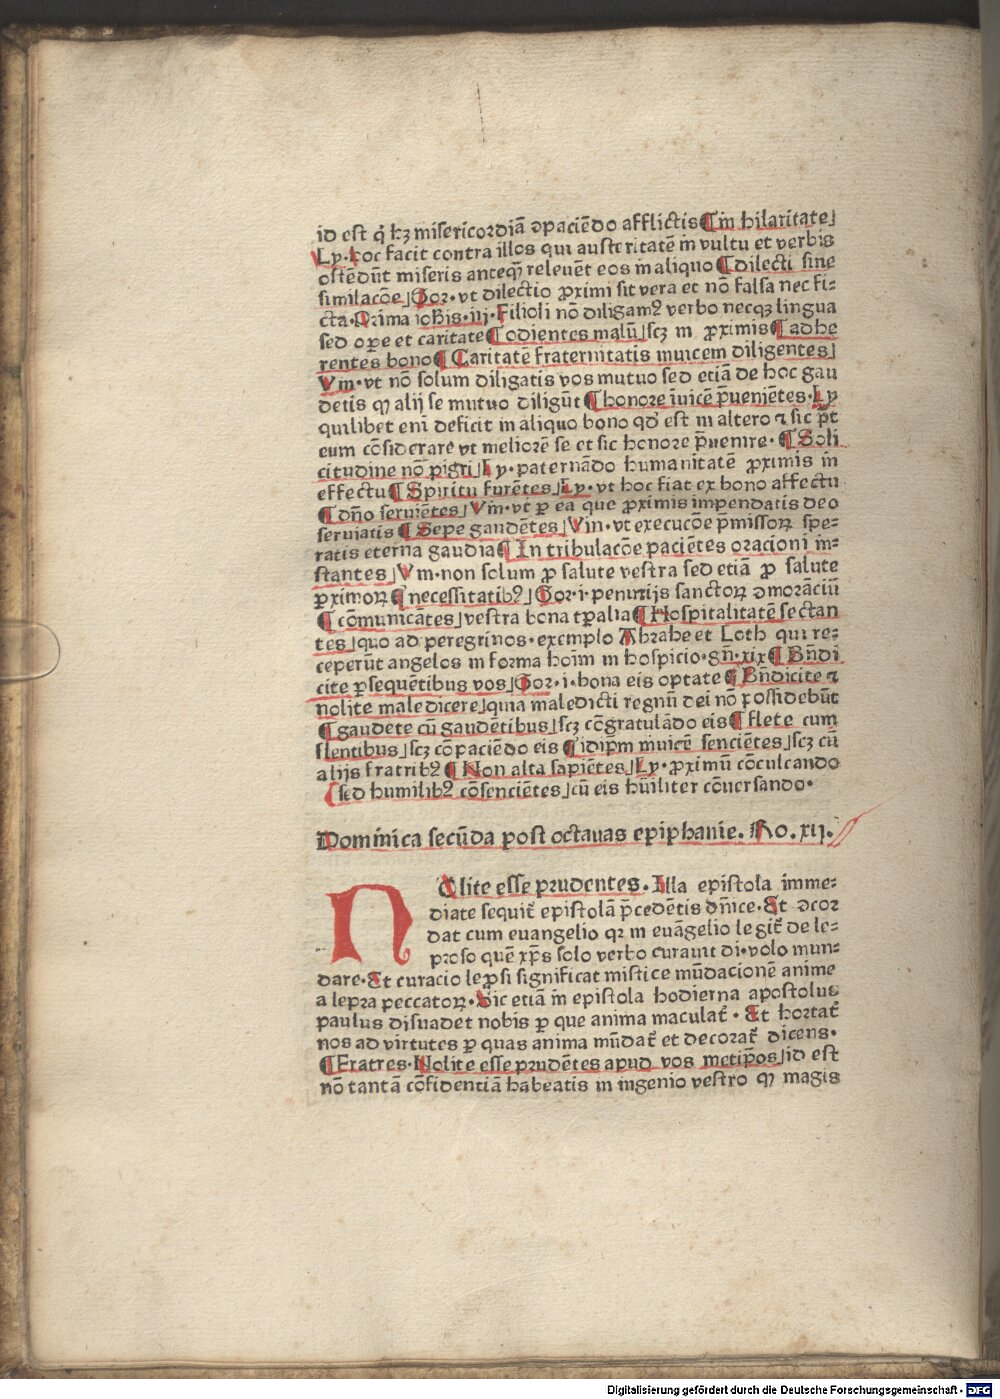 id est qͥ hꝫ misericordiā ꝯpaciēdo afflictis ¶ in hilaritate⌋
Ly·hoc facit contra illos qui austeritatē in vultu et verbis
ostēdūt miseris anteqꝫ releuēt eos in aliquo ¶ dilecti sine
similacōe⌋ Gor·vt dilectio ꝓximi sit vera et nō falsa nec fi-
cta·Prima iohis·iij·Filioli nō diligamꝰ verbo necqꝫ lingua
sed oꝑe et caritate ¶ odientes malū⌋ scꝫ in ꝓximis ¶ adhe
rentes bono ¶ Caritatē fraternitatis inuicem diligentes⌋
Vin·vt nō solum diligatis vos mutuo sed etiā de hoc gau
detis qꝫ alij se mutuo diligūt ¶ honore īuicē p̄uenietes·Ly
quilibet enī deficit in aliquo bono qd̓ est in altero ⁊ sic p̄t
eum cōsiderare vt meliorē se et sic honore p̄uenire· ¶ Soli
citudine nō pigri⌋ Ly·paternādo humanitatē ꝓximis in
effectu ¶ Spiritu furētes⌋ Ly·vt hoc fiat ex bono affectu
¶ dn̄o seruiētes⌋ Vin·vt ꝑ ea que ꝓximis impendatis deo
seruiatis ¶ Sepe gaudētes⌋ Vin·vt execucōe p̄missoꝝ spe-
ratis eterna gaudia ¶ In tribulacōe paciētes oracioni in-
stantes⌋ Vin·non solum ꝓ salute vestra sed etiā ꝓ salute
ꝓximoꝝ ¶ necessitatibꝰ⌋ Gor·i·penurijs sanctoꝝ ꝯmorāciū
¶ cōmunicātes⌋ vestra bona tꝑalia ¶ Hospitalitatē sectan
tes⌋ quo ad peregrinos·exemplo Abrahe et Loth qui re-
ceperūt angelos in forma hoīm in hospicio·gn̄·xix ¶ Bn̄di
cite ꝑsequētibus vos⌋ Gor·i·bona eis optate ¶ Bn̄dicite ⁊
nolite maledicere⌋ quia maledicti regnū dei nō possidebūt
¶ gaudete cū gaudētibus⌋ scꝫ cōgratulādo eis ¶ flete cum
flentibus⌋ scꝫ cōpaciēdo eis ¶ idip̄m inuicē senciētes⌋ scꝫ cū
alijs fratribꝰ ¶ Non alta sapiētes⌋ Ly·ꝓximū cōculcando
¶ sed humilibꝰ cōsenciētes⌋ cū eis hūiliter cōuersando·
Dominica secūda post octauas epiphanie. Ro. xij.
NOlite esse prudentes. Illa epistola imme-
diate sequit̉ epistolā p̄cedētis dn̄ice·Et ꝯcor
dat cum euangelio qꝛ in euāgelio legit̉ de le-
proso quē xp̄s solo verbo curauit di·volo mun-
dare·Et curacio leꝓsi significat mistice mūdacionē anime
a lepra peccatoꝝ·Sic etiā in epistola hodierna apostolus
paulus disuadet nobis ꝑ que anima maculat̉· Et hortat̉
nos ad virtutes ꝑ quas anima mūdat̉ et decorat̉ dicens·
¶ Fratres·Nolite esse prudētes apud vos metip̄os⌋ id est
nō tantā cōfidentiā habeatis in ingenio vestro qꝫ magis
Digitalisierung gefördert durch die Deutsche Forschungsgemeinschaft - DFG